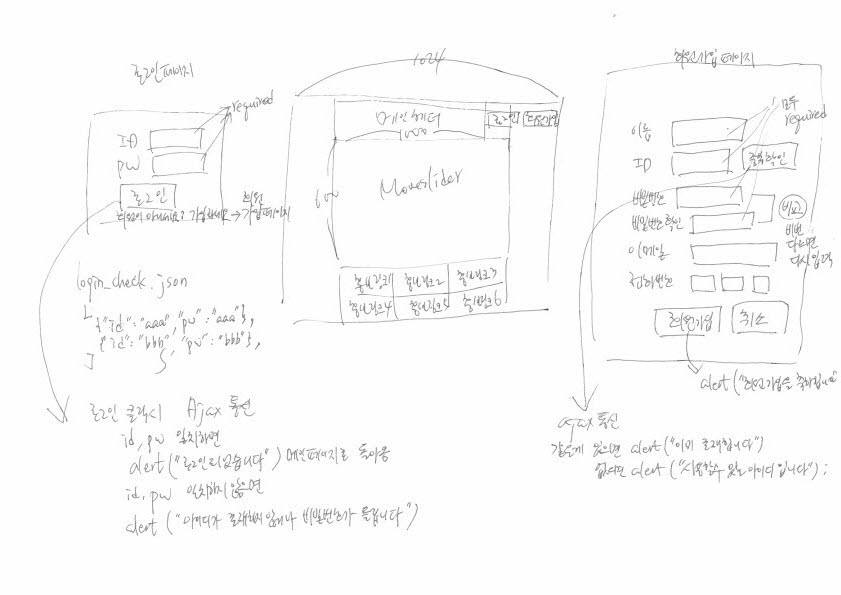 로그인페이지
required
ID
PW
로그인
회원이 아니세요? 가입하세요 → 회원가입페이지
login_check.json
[
{"id":"aaa","pw":"aaa"},
{"id":"bbb", "pw":"bbb"},
]
로그인 클릭시 Ajax 통신
id, pw 일치하면
alert("로그인되었습니다") 메인페이지로 돌아옴
id, pw 일치하지않으면
alert("아이디가 존재하지않거나 비밀번호가 틀립니다")
1024
메인헤더
로그인
회원가입
1000
600
Moveslider
홍보링크1 홍보링크2 홍보링크3
홍보링크4 홍보링크5 홍보링크6
회원가입페이지
모두
required
이름
ID
중복확인
비밀번호
비밀번호확인
비교
비번
다르면
다시입력
이메일
전화번호
회원가입
취소
alert("회원가입을 축하합니다"
ajax 통신
같은게 있으면 alert("이미 존재합니다")
없으면 alert("사용할수 있는 아이디입니다");